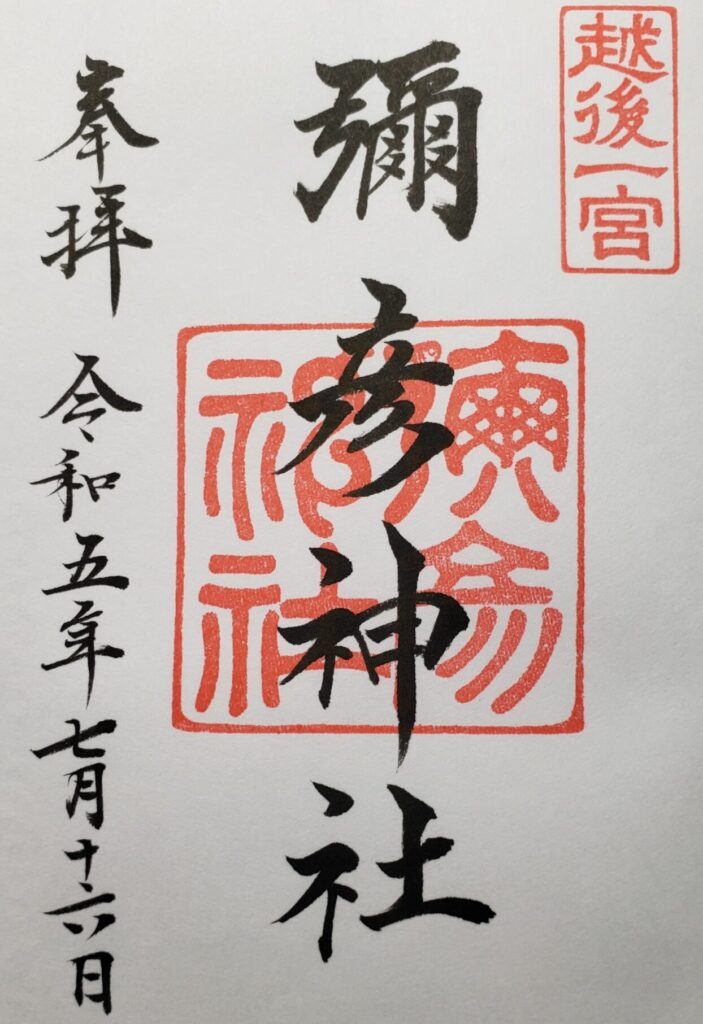 越後一宮
彌彦神社
奉拝 令和五年七月十六日